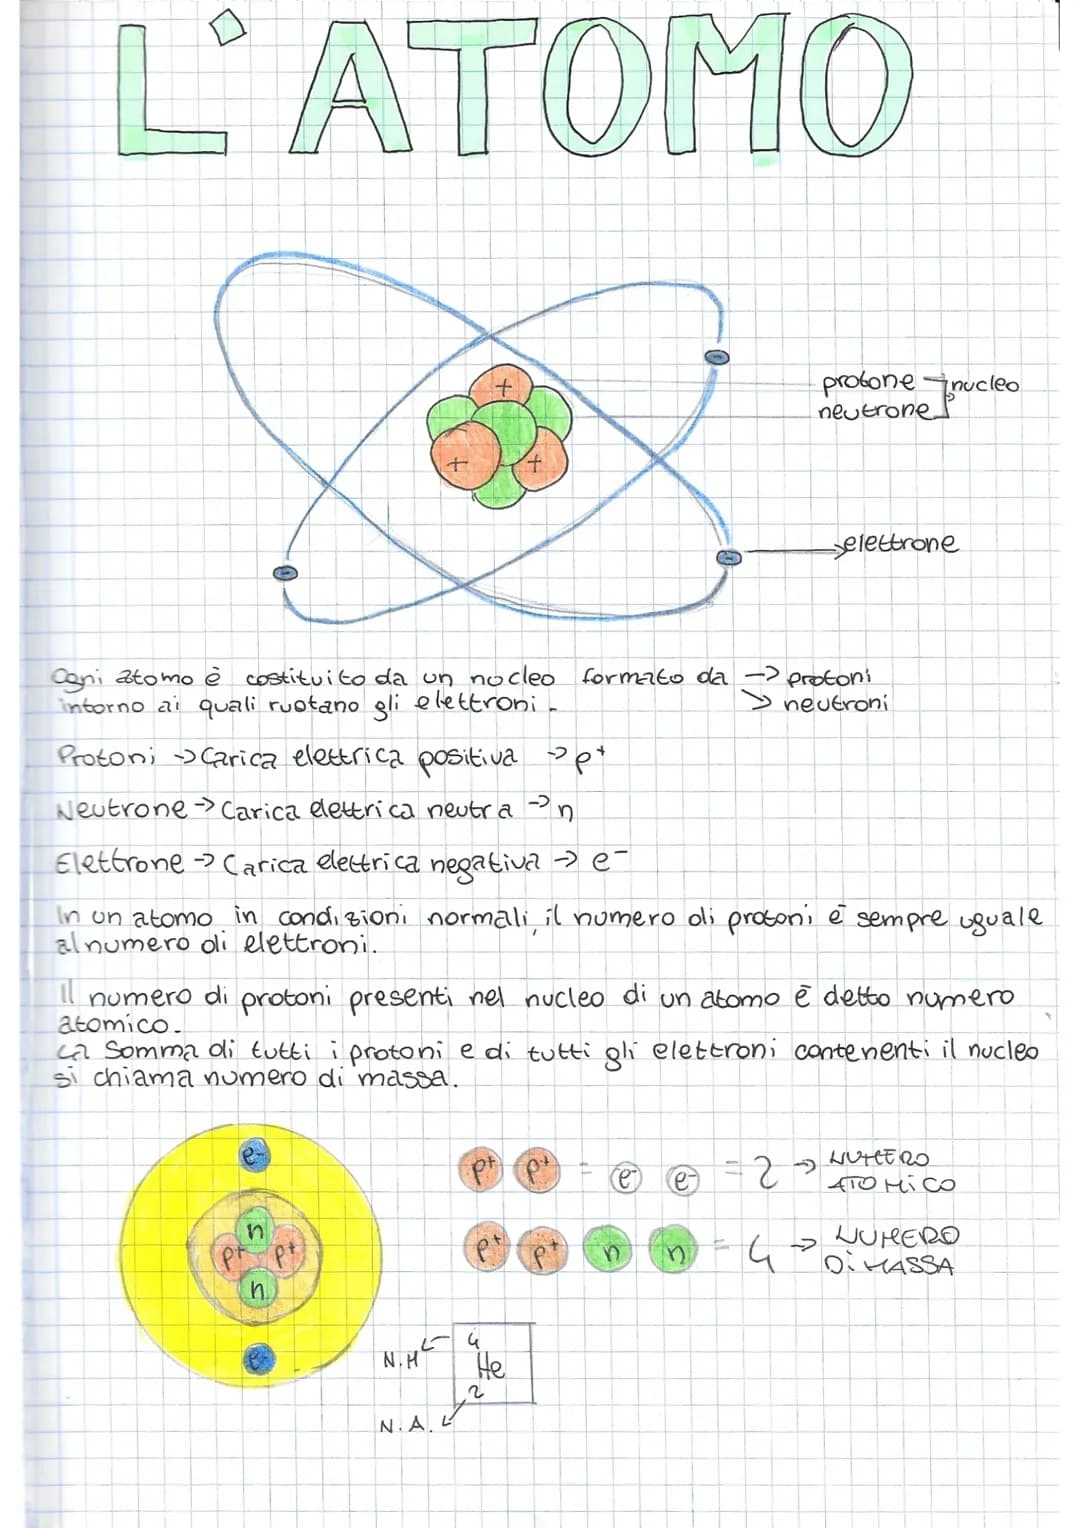 L'ATOMO
+
-
protone
nucleo
neutrone
+
+
-
elettrone
-
Ogni atomo è costituito da un nucleo formato da -> protoni
intorno ai quali ruotano gli elettroni.
> neutroni
Protoni -> Carica elettrica positiva -> p+
Neutrone -> Carica elettrica neutra -> n
Elettrone -> Carica elettrica negativa -> e-
In un atomo in condizioni normali, il numero di protoni è sempre uguale
al numero di elettroni.
Il numero di protoni presenti nel nucleo di un atomo è detto numero
atomico.
La Somma di tutti i protoni e di tutti gli elettroni contenenti il nucleo
si chiama numero di massa.
e-
n
p+ p+
n
e-
p+ p+ = e- e- = 2 -> NUMERO
ATOMICO
p+ p+ n n = 4 -> NUMERO
DI MASSA
N.M
4
He
2
N.A.